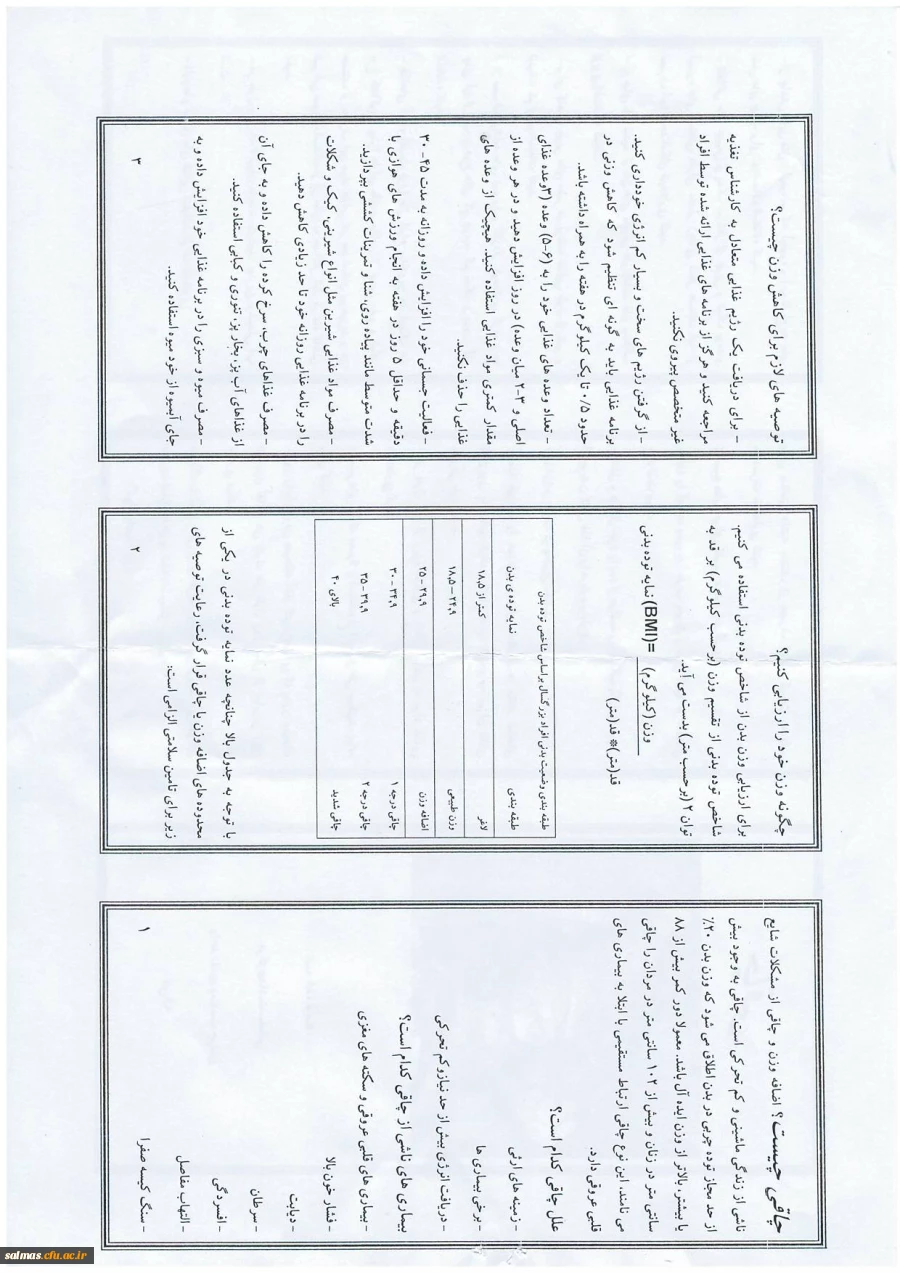 چاقی چیست؟ اضافه وزن و چاقی از مشکلات شایع
ناشی از زندگی ماشینی و کم تحرکی است. چاقی به وجود بیش
از حد مجاز توده چربی در بدن اطلاق می شود که وزن بدن ۲۰%
یا بیشتر، بالاتر از وزن ایده آل باشد. معمولا دور کمر بیش از ۸۸
سانتی متر در زنان و بیش از ۱۰۲ سانتی متر در مردان را چاقی
می نامند. این نوع چاقی ارتباط مستقیمی با ابتلا به بیماری های
قلبی عروقی دارد.
علل چاقی کدام است؟
- زمینه های ارثی
- برخی بیماری ها
- دریافت انرژی بیش از حد نیاز و کم تحرکی
بیماری های ناشی از چاقی کدام است؟
- بیماری های قلبی عروقی و سکته های مغزی
- فشار خون بالا
- دیابت
- سرطان
- افسردگی
- التهاب مفاصل
- سنگ کیسه صفرا
۱
چگونه وزن خود را ارزیابی کنیم؟
برای ارزیابی وزن بدن از شاخص توده بدنی استفاده می کنیم.
شاخص توده بدنی از تقسیم وزن (برحسب کیلوگرم) بر قد به
توان ۲ (برحسب متر) بدست می آید.
وزن (کیلوگرم)
نمایه توده بدنی (BMI)=
قد(متر)* قد(متر)
طبقه بندی وضعیت بدنی افراد بزرگسال براساس شاخص توده بدن
طبقه بندی نمایه توده ی بدن
لاغر کمتر از ۱۸٫۵
وزن طبیعی ۲۴٫۹ – ۱۸٫۵
اضافه وزن ۲۹٫۹ - ۲۵
چاقی درجه ۱ ۳۴٫۹ - ۳۰
چاقی درجه ۲ ۳۹٫۹ - ۳۵
چاقی شدید بالای ۴۰
با توجه به جدول بالا چنانچه عدد نمایه توده بدنی در یکی از
محدوده های اضافه وزن یا چاقی قرار گرفت، رعایت توصیه های
زیر برای تامین سلامتی الزامی است:
۲
توصیه های لازم برای کاهش وزن چیست؟
- برای دریافت یک رژیم غذایی متعادل به کارشناس تغذیه
مراجعه کنید و هرگز از برنامه های غذایی ارائه شده توسط افراد
غیر متخصص پیروی نکنید.
- از گرفتن رژیم های سخت و بسیار کم انرژی خودداری کنید.
برنامه غذایی باید به گونه ای تنظیم شود که کاهش وزنی در
حدود ۰/۵ تا یک کیلوگرم در هفته را به همراه داشته باشد.
- تعداد وعده های غذایی خود را به (۶-۵) وعده (۳وعده غذای
اصلی و ۳-۲ میان وعده) در روز افزایش دهید و در هر وعده از
مقدار کمتری مواد غذایی استفاده کنید. هیچیک از وعده های
غذایی را حذف نکنید.
- فعالیت جسمانی خود را افزایش داده و روزانه به مدت ۴۵- ۳۰
دقیقه و حداقل ۵ روز در هفته به انجام ورزش های هوازی با
شدت متوسط مانند پیاده روی، شنا و تمرینات کششی بپردازید.
- مصرف مواد غذایی شیرین مثل انواع شیرینی، کیک و شکلات
را در برنامه غذایی روزانه خود تا حد زیادی کاهش دهید.
- مصرف غذاهای چرب، سرخ کرده را کاهش داده و به جای آن
از غذاهای آب پز، بخار پز، تنوری و کبابی استفاده کنید.
- مصرف میوه و سبزی را در برنامه غذایی خود افزایش داده و به
جای آبمیوه از خود میوه استفاده کنید.
۳
salmas.cfu.ac.ir